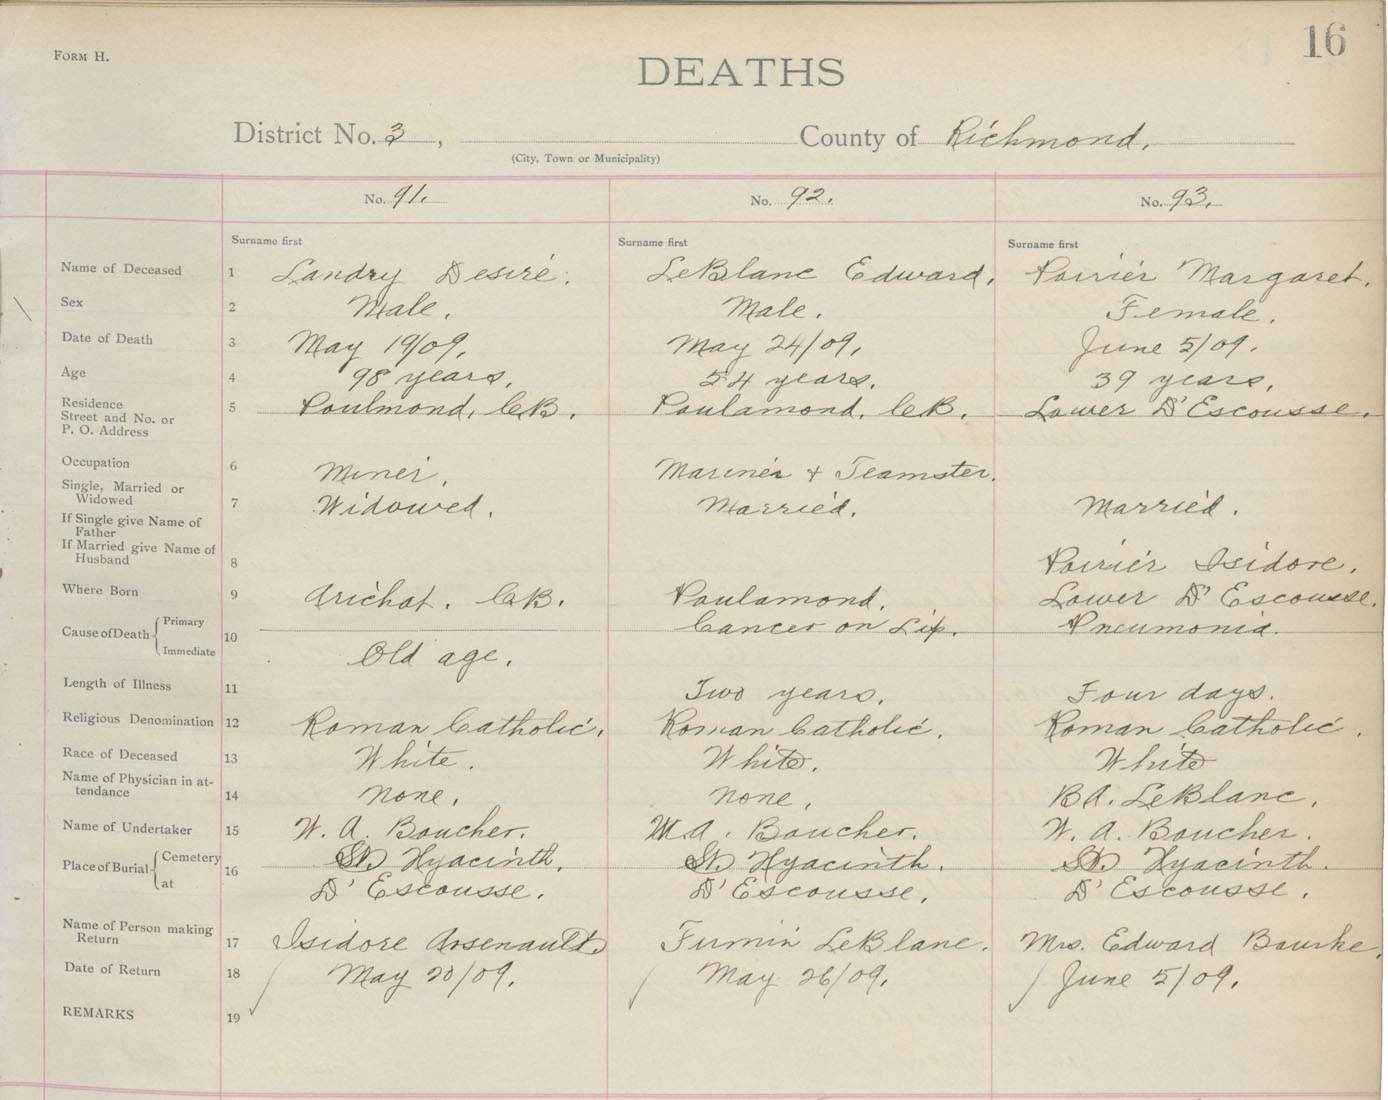 16
FORM H.
DEATHS
District No. 3, County of Richmond.
(City, Town or Municipality)
No. 91. No. 92. No. 93.
Surname first Surname first Surname first
Name of Deceased 1 Landry Desiré. LeBlanc Edward. Poiriér Margaret.
Sex 2 Male. Male. Female.
Date of Death 3 May 19/09. May 24/09. June 5/09.
Age 4 98 years. 54 years. 39 years.
Residence
Street and No. or
P. O. Address 5 Poulmond, C.B. Poulamond, C.B. Lower D'Escousse.
Occupation 6 Miner. Mariner & Teamster.
Single, Married or
Widowed 7 Widowed. Married. Married.
If Single give Name of
Father
If Married give Name of
Husband 8 Poiriér Isidore.
Where Born 9 Arichat. C.B. Poulamond. Lower D'Escousse.
Cause of Death Primary 10 Cancer on Lip. Pneumonia.
Immediate Old age.
Length of Illness 11 Two years. Four days.
Religious Denomination 12 Roman Catholic. Roman Catholic. Roman Catholic.
Race of Deceased 13 White. White. White
Name of Physician in at-
tendance 14 None. None. B.A. LeBlanc.
Name of Undertaker 15 W. A. Boucher. W.A. Boucher. W. A. Boucher.
Place of Burial Cemetery 16 St. Hyacinth. St. Hyacinth. St. Hyacinth.
at D'Escousse. D'Escousse. D'Escousse.
Name of Person making
Return 17 Isidore Arsenault Firmin LeBlanc. Mrs. Edward Bourke.
Date of Return 18 May 20/09. May 26/09. June 5/09.
REMARKS 19